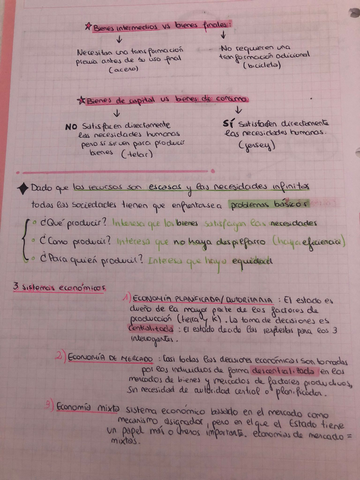 ★ Bienes intermedios vs bienes finales:
Necesitan una transformación
previa antes de su uso final
(acero)
No requieren una
transformación adicional
(bicicleta)
★ Bienes de capital vs bienes de consumo
NO Satisfacen directamente
las necesidades humanas
pero si sirven para producir
bienes (telar)
SÍ Satisfacen directamente
las necesidades humanas.
(jersey)
◆ Dado que los recursos son escasos y las necesidades infinitas
todas las sociedades tienen que enfrentarse a problemas básicos
¿Qué producir? Interesa que los bienes satisfagan las necesidades
¿Cómo producir? Interesa que no haya despilfarro (haya eficiencia)
¿Para quién producir? Interesa que haya equidad
3 sistemas económicos
1) ECONOMÍA PLANIFICADA/AUTORITARIA: El estado es
dueño de la mayor parte de los factores de
producción (tierra y K). La toma de decisiones es
centralizada: El estado decide las respuestas para los 3
interrogantes.
2) ECONOMÍA DE MERCADO: todas las decisiones económicas son tomadas
por los individuos de forma descentralizada en los
mercados de bienes y mercados de factores productivos.
Sin necesidad de autoridad central o planificador.
3) Economía mixta sistema económico basado en el mercado como
mecanismo asignador, pero en el que el Estado tiene
un papel más o menos importante. economías de mercado =
mixtas.